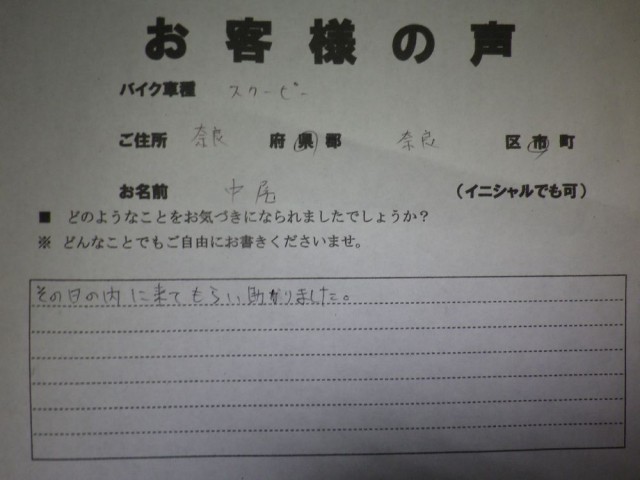 お客様の声
バイク車種 スクーピー
ご住所 奈良 府 県 郡 奈良 区 市 町
お名前 中居 (イニシャルでも可)
■ どのようなことをお気づきになられましたでしょうか?
※ どんなことでもご自由にお書きくださいませ。
その日の内に来てもらい助かりました。